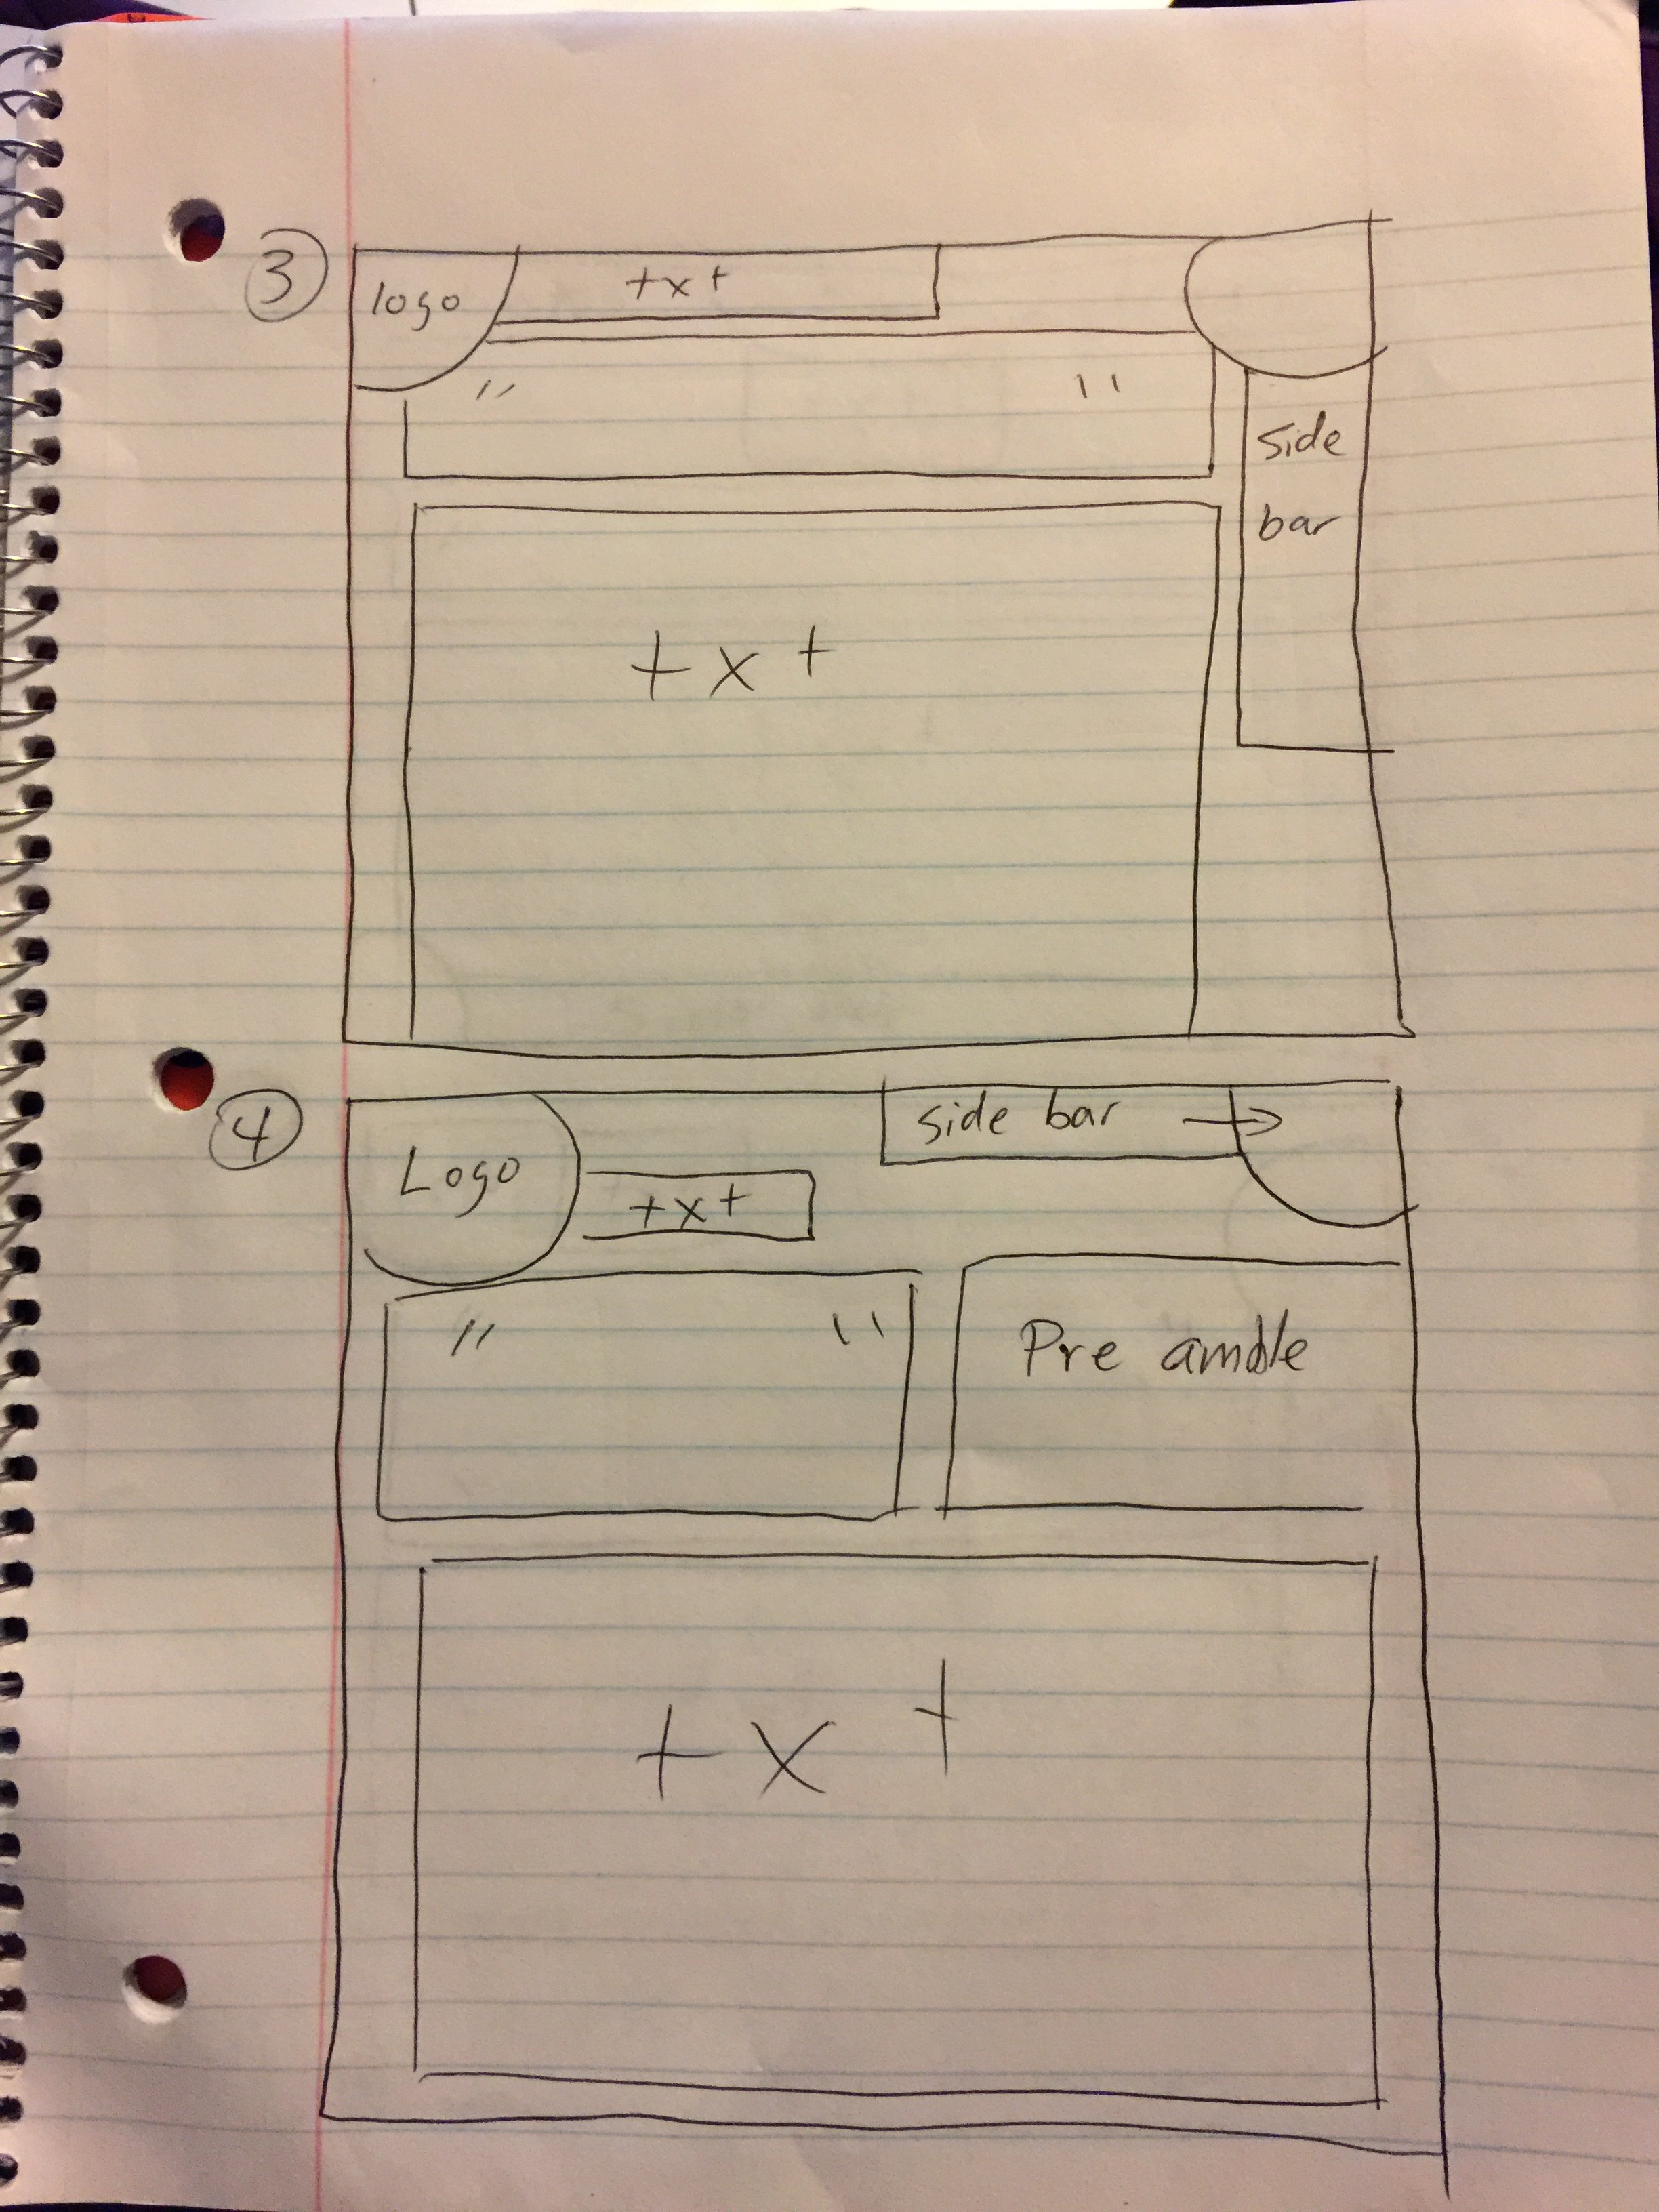 3
logo
txt
" "
side
bar
txt
4
Logo
txt
side bar →
" "
Pre amble
txt